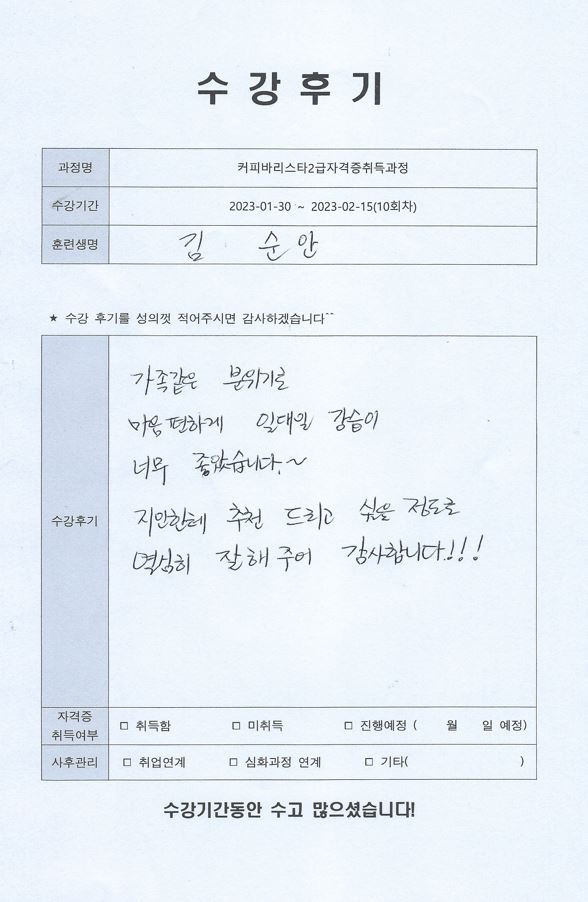 수강후기
과정명 커피바리스타2급자격증취득과정
수강기간 2023-01-30 ~ 2023-02-15(10회차)
훈련생명 김 순안
★ 수강 후기를 성의껏 적어주시면 감사하겠습니다^^
수강후기
가족같은 분위기로
마음 편하게 일대일 강습이
너무 좋았습니다.~
지안한테 추천 드리고 싶을 정도로
열심히 잘해 주어 감사합니다!!!
자격증
취득여부 □ 취득함 □ 미취득 □ 진행예정 ( 월 일 예정)
사후관리 □ 취업연계 □ 심화과정 연계 □ 기타( )
수강기간동안 수고 많으셨습니다!